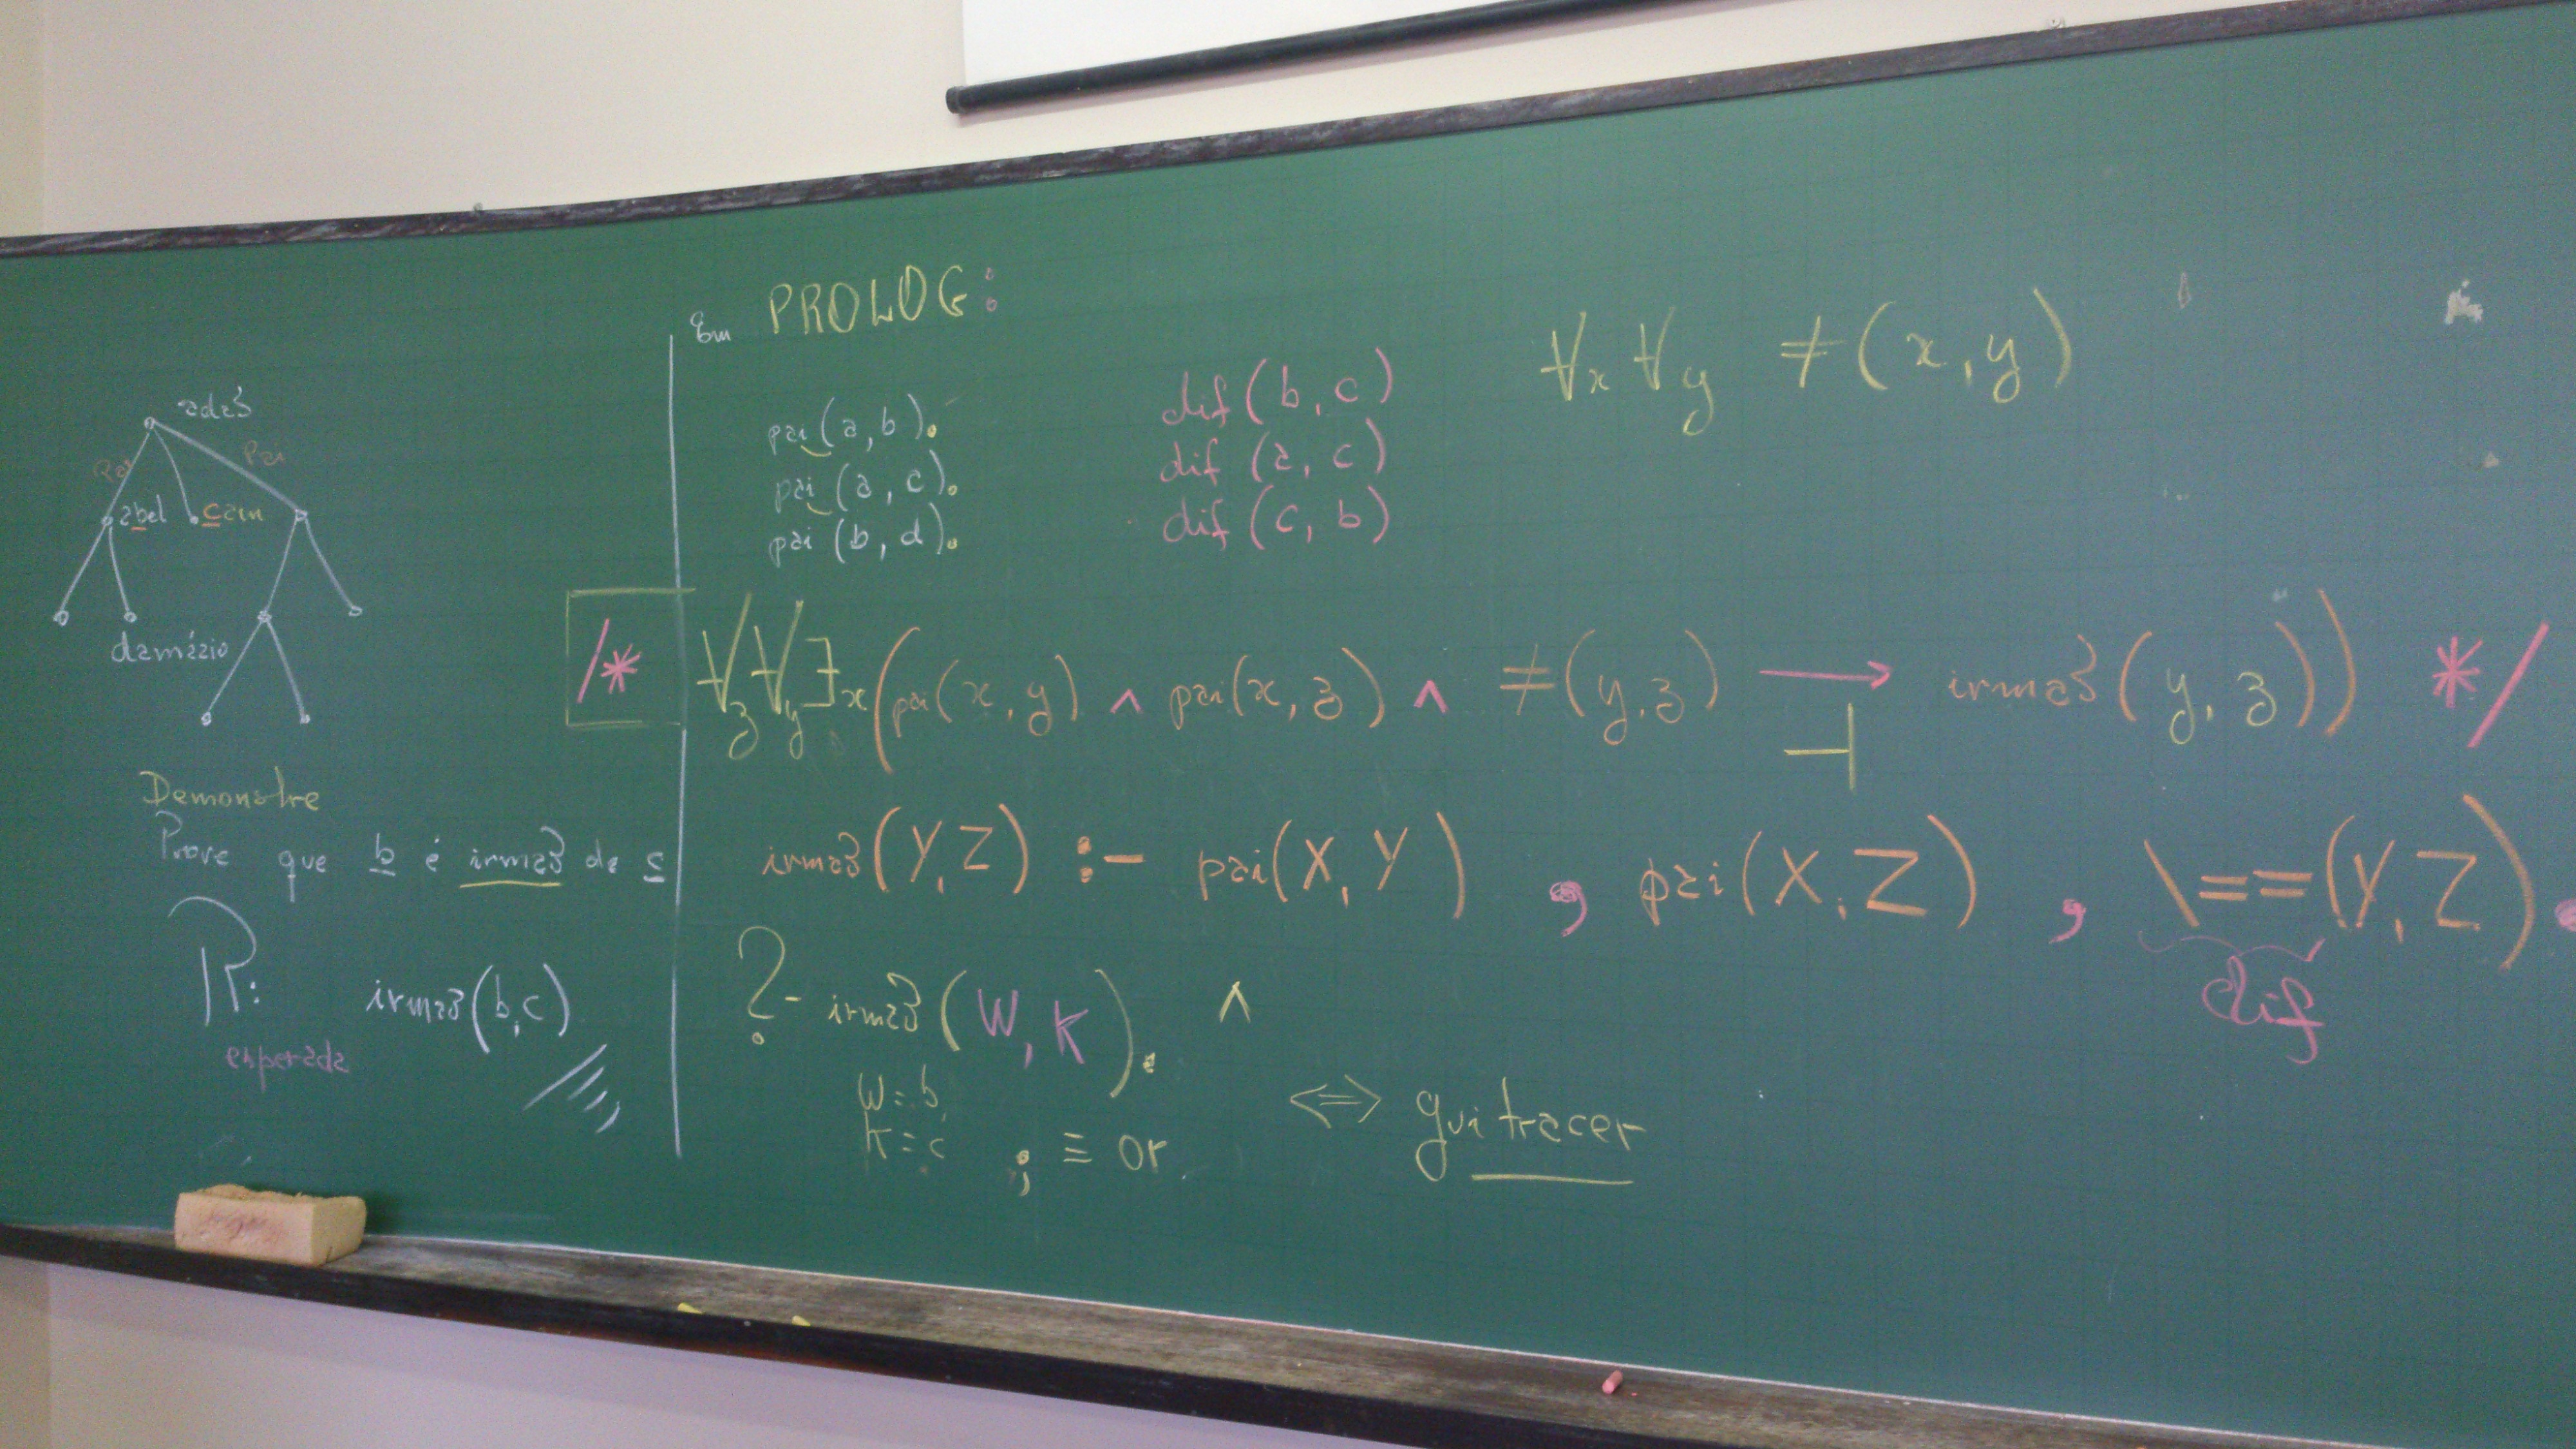 adão
Pai Pai
abel caim
damázio
Demonstre
Prove que b é irmão de c
R: irmão(b,c)
esperada
Em PROLOG:
pai(a,b).
pai(a,c).
pai(b,d).
dif(b,c)
dif(a,c)
dif(c,b)
∀x ∀y ≠(x,y)
/* ∀z∀y∃x(pai(x,y) ∧ pai(x,z) ∧ ≠(y,z) → irmão(y,z)) */
⊣
irmão(Y,Z) :- pai(X,Y) , pai(X,Z) , \==(Y,Z).
dif
?- irmão(W,K). ∧
W=b,
K=c ; ≡ or
<=> guitracer